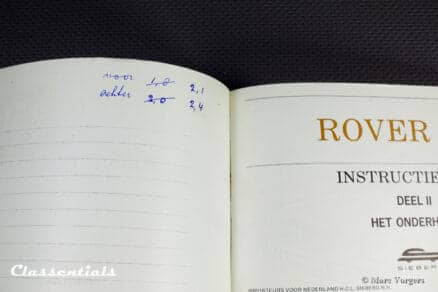 voor 1,8 2,1
achter 2,0 2,4
ROVER
INSTRUCTIE
DEEL II
HET ONDERH
SIEBER
IMPORTEURS VOOR NEDERLAND H.C.L. SIEBERG N.V.
Classentials
© Marc Vorgers